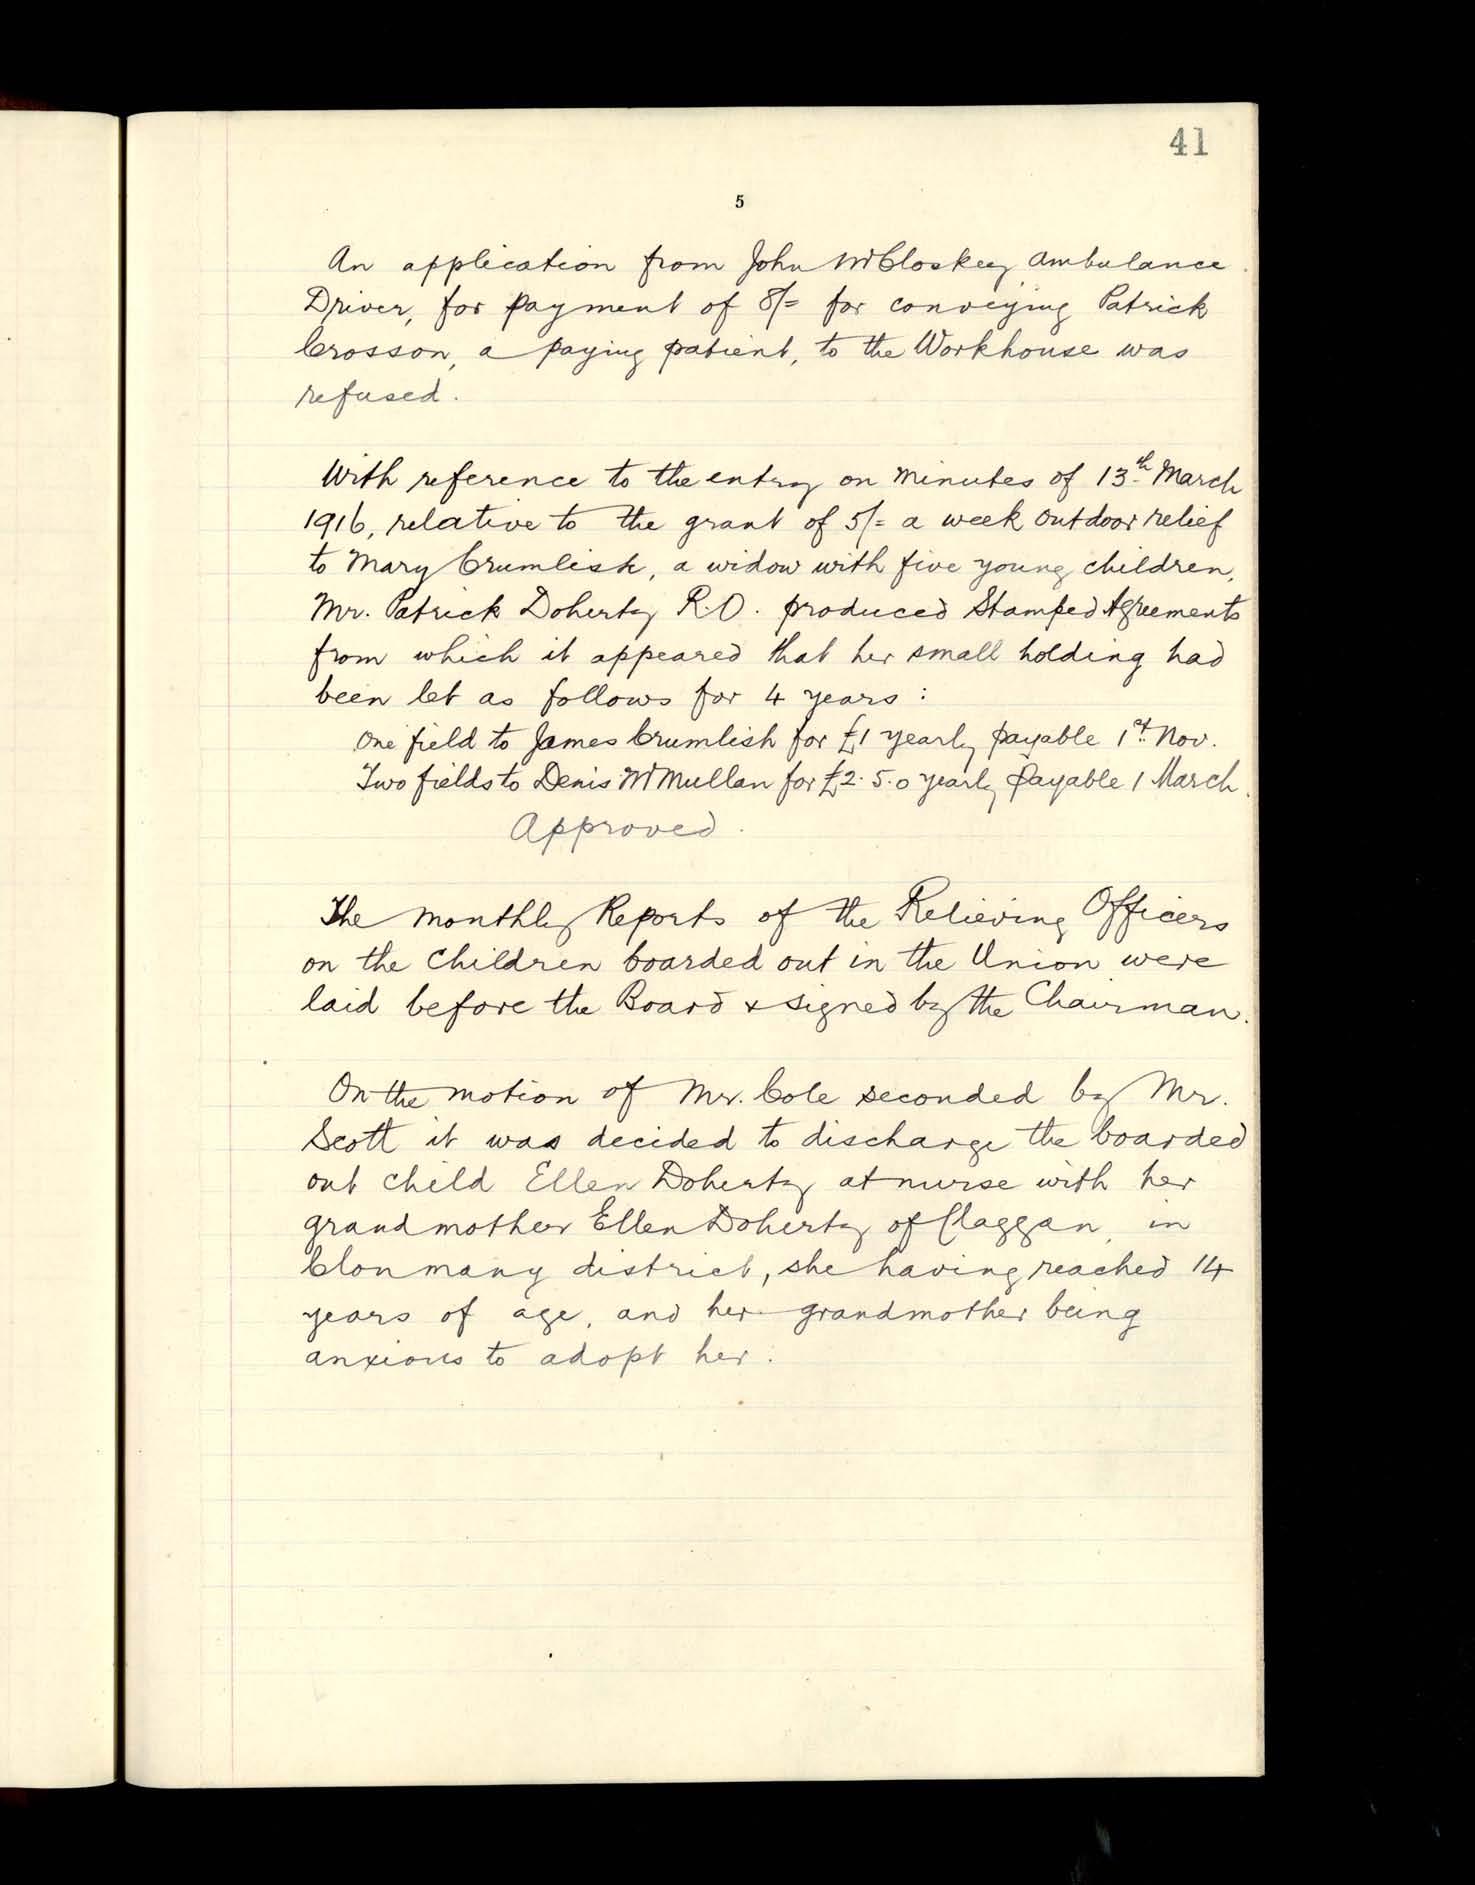 41
5
An application from John McCloskey Ambulance
Driver, for payment of 8/= for conveying Patrick
Crosson, a paying patient, to the Workhouse was
refused.
With reference to the entry on minutes of 13th March
1916, relative to the grant of 5/= a week outdoor relief
to Mary Crumlish, a widow with five young children,
Mr. Patrick Doherty R.O. produced Stamped Agreements
from which it appeared that her small holding had
been let as follows for 4 years :
One field to James Crumlish for £1 yearly payable 1st Nov.
Two fields to Denis McMullan for £2.5.0 yearly payable 1 March.
Approved.
The monthly Reports of the Relieving Officers
on the children boarded out in the Union were
laid before the Board & signed by the Chairman.
On the motion of Mr. Cole seconded by Mr.
Scott it was decided to discharge the boarded
out child Ellen Doherty at nurse with her
grandmother Ellen Doherty of Claggan, in
Clonmany district, she having reached 14
years of age, and her grandmother being
anxious to adopt her.